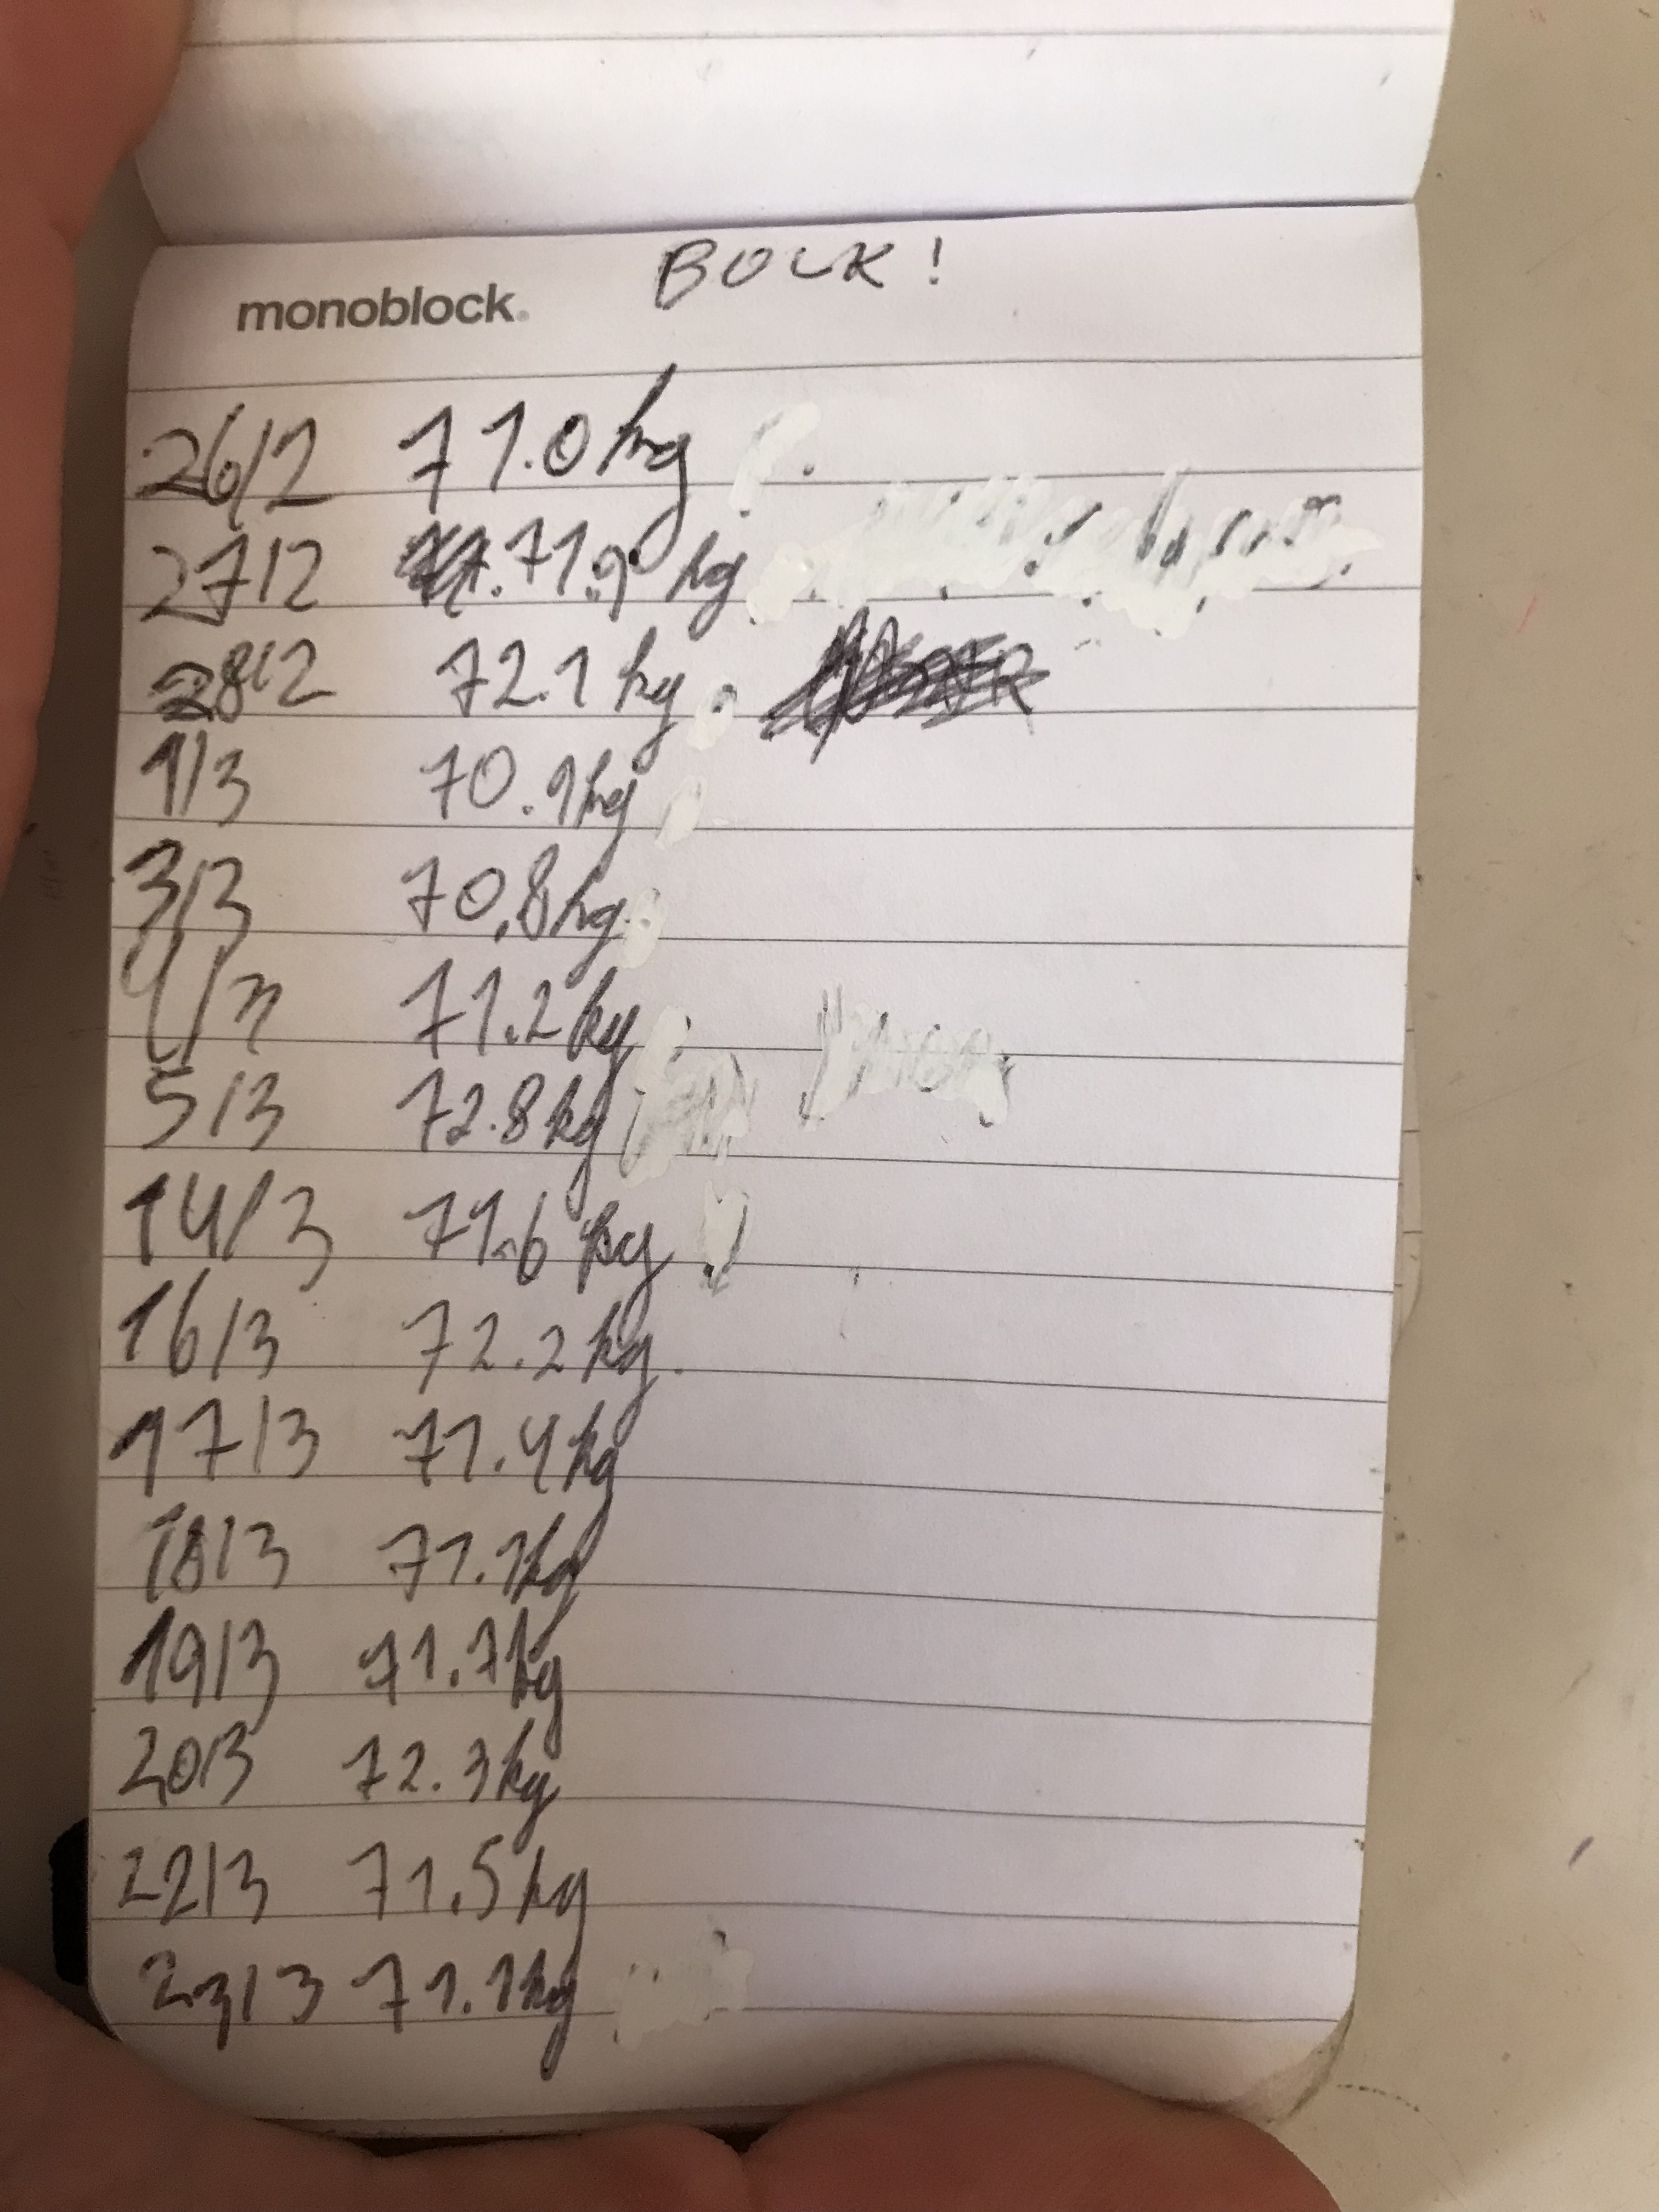 BOLK!
monoblock.
26/2 71.0 kg
27/2 71.9 kg
28/2 72.1 kg
1/3 70.9 kg
3/3 70.8 kg
4/3 71.2 kg
5/3 72.8 kg
14/3 71.6 kg
16/3 72.2 kg.
17/3 71.4 kg
18/3 71.1 kg
19/3 71.7 kg
20/3 72.3 kg
22/3 71.5 kg
23/3 71.1 kg